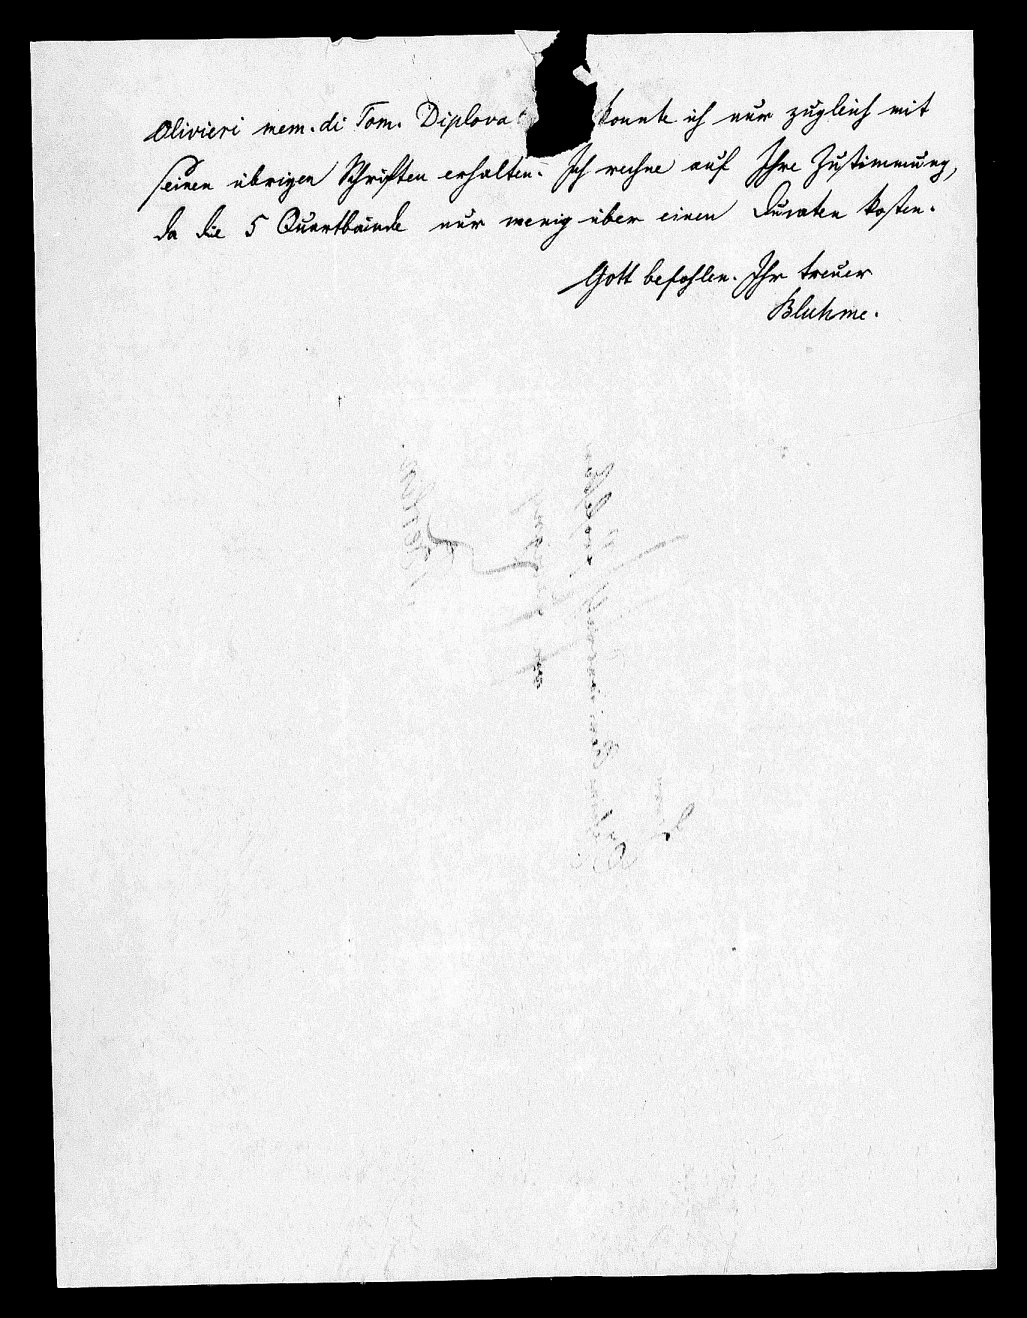 Olivieri mem. di Tom. Diplova konnte ich nur zugleich mit
seinen übrigen Schriften erhalten. Ich rechne auf Ihre Zustimmung,
da die 5 Quartbände nur wenig über einen Ducaten kosten.
Gott befohlen. Ihr treuer
Bluhme.